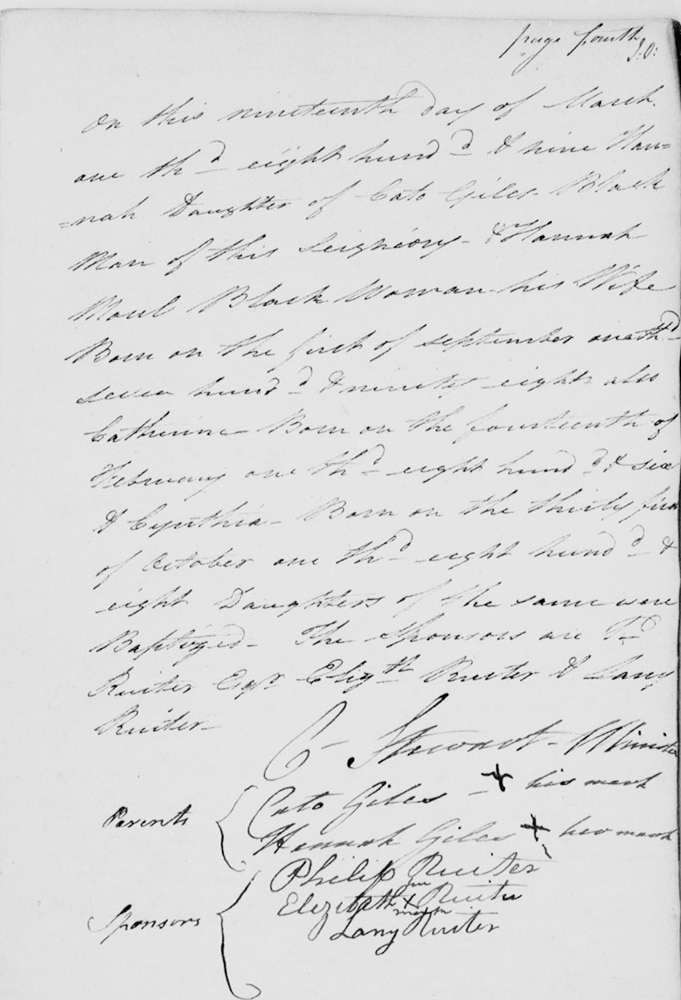 page fourth
J:O:
On this nineteenth day of March
one thd eight hundd & nine Han=
=nah Daughter of Cato Giles - Black
Man of this Seigneory - & Hannah
Maul Black Woman his Wife
Born on the first of September one thd
seven hundd & ninety eight also
Catherine - Born on the fourteenth of
February one thd eight hundd & six
& Cynthia - Born on the thirty first
of October one thd eight hundd &
eight Daughters of the same were
Baptized - The Sponsors are
Ruiter Esqr Elizth Ruiter & Lany
Ruiter -
C Stewart - Minister
Parents
Cato Giles + his mark
Hannah Giles + her mark
Sponsors
Philip Ruiter
Elizabeth her + mark Ruiter
Lany Ruiter